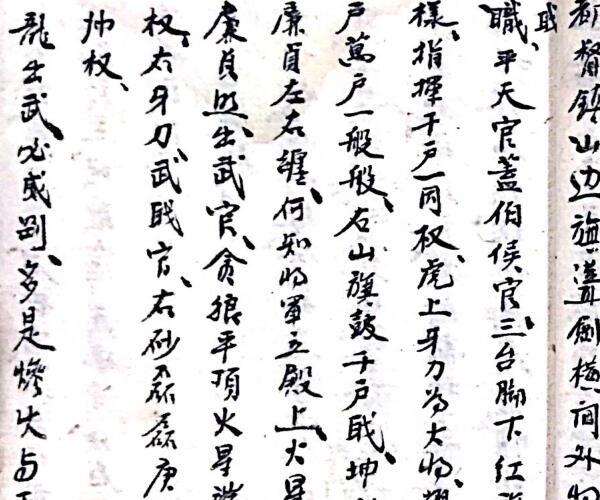 都督鎮山边旗溋劍橫间外
職、平天官蓋伯侯官、三台脚下红
様、指揮千戶一同权、虎上牙力为大将
戶萬戶一般般、右山旗鼓千戶职、坤
廉貞左右纏、何知将軍立殿上、火星
廉貞照出武官、貪狼平頂火星
权、右牙刀、武职官、右砂磊磊庚
帅权、
龍出武、必威剛、多是燥火与